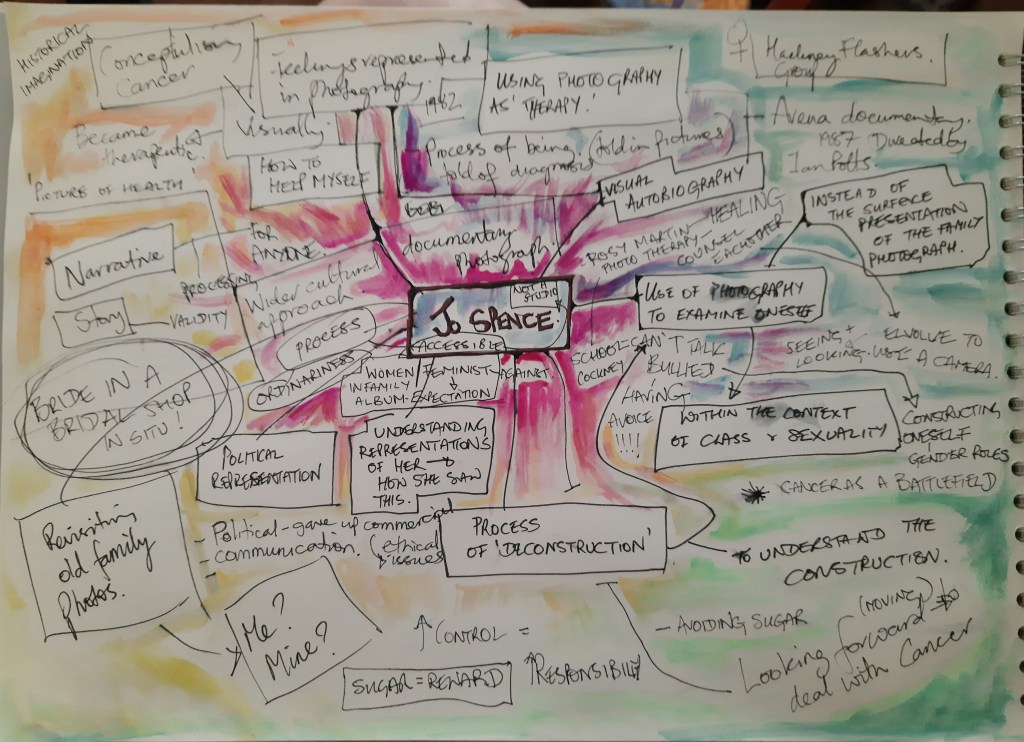 HISTORICAL
IMAGINATION
Conceptulising
Cancer
- feelings represented
in photography.
visually.
1982
USING PHOTOGRAPHY
AS THERAPY.
♀ Hackney Flashers.
Group
Became
therapeutic
HOW TO
HELP MYSELF
Process of being (told in pictures)
told of diagnosis
Arena documentary.
1987 Directed by
Ian Potts.
'PICTURE OF HEALTH'
VISUAL
AUTOBIOGRAPHY
INSTEAD OF
THE SURFACE
PRESENTATION
OF THE FAMILY
PHOTOGRAPH.
Narrative
PROCESSING
FOR
ANYONE.
documentary
photograph.
HEALING
ROSY MARTIN
PHOTO THERAPY -
COUNSEL
EACHOTHER
Story
VALIDITY
Wider cultural
approach
PROCESS
ORDINARINESS
NOT A
STUDIO!
JO SPENCE
ACCESSIBLE
USE OF PHOTOGRAPHY
TO EXAMINE ONESELF
SCHOOL- CAN'T TALK
COCKNEY BULLIED
HAVING
A VOICE
!!!!
SEEING +
LOOKING.
- ELVOLVE TO
USE A CAMERA.
BRIDE IN A
BRIDAL SHOP
IN SITU!
WOMEN FEMINIST - AGAINST.
IN FAMILY
ALBUM - EXPECTATION
WITHIN THE CONTEXT
OF CLASS & SEXUALITY
CONSTRUCTING
ONESELF
GENDER ROLES
POLITICAL
REPRESENTATION
UNDERSTANDING
REPRESENTATIONS
OF HER →
HOW SHE SAW
THIS.
CANCER AS A BATTLEFIELD
Revisiting
old family
photos.
- Political - gave up commercial
- communication. (ethical
issues
PROCESS
OF 'DECONSTRUCTION'
TO UNDERSTAND THE
CONSTRUCTION.
Me?
Mine?
↑ CONTROL =
↑ RESPONSIBILIY
SUGAR = REWARD
- AVOIDING SUGAR
(MOVING)
Looking forward to
deal with Cancer